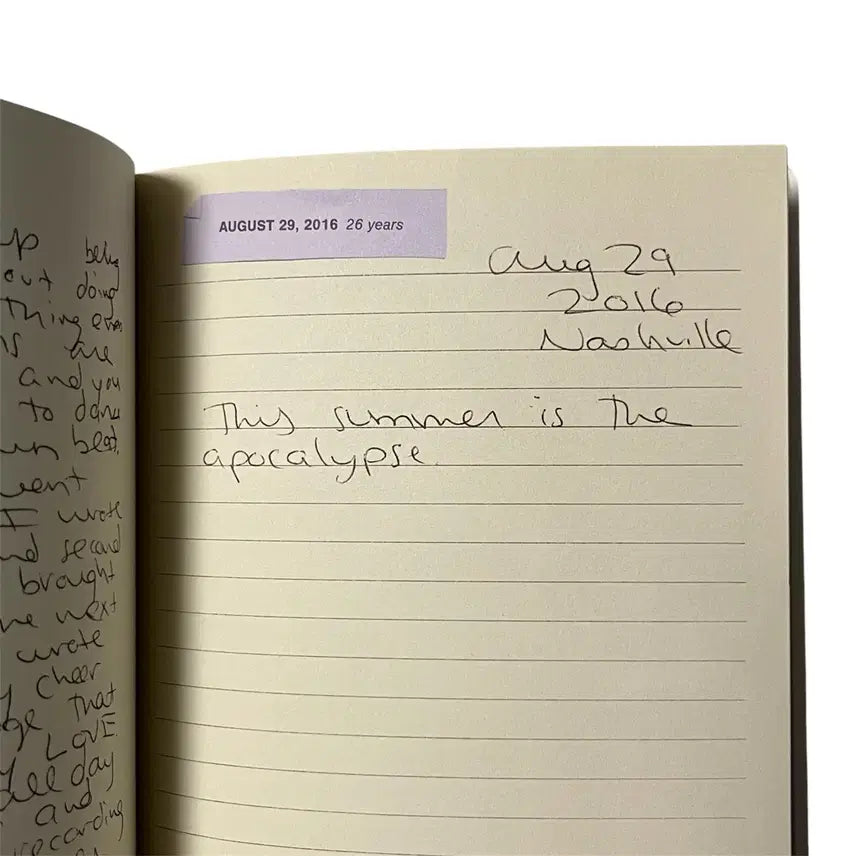 up being
out doing
thing ever
is are
and you
to dance
un beat.
went
I wrote
nd second
brought
he next
wrote
y cheer
ge that
y LOVE
all day
and
recording
AUGUST 29, 2016 26 years
Aug 29
2016
Nashville
This summer is the
apocalypse.